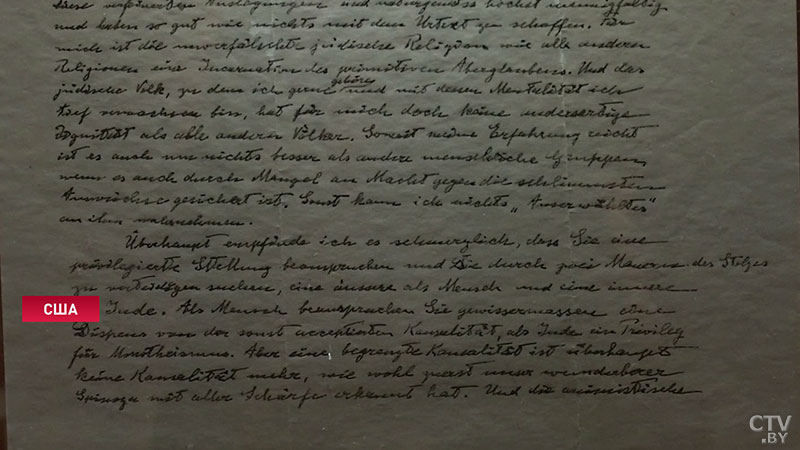 diese verfeinerten Auslegungen sind naturgemäss höchst mannigfaltig
und haben so gut wie nichts mit dem Urtext zu schaffen. Für
mich ist die unverfälschte jüdische Religion wie alle anderen
Religionen eine Incarnation des primitiven Aberglaubens. Und das
jüdische Volk, zu dem ich gerne gehöre und mit dessen Mentalität ich
tief verwachsen bin, hat für mich doch keine andersartige
Dignität als alle anderen Völker. Soweit meine Erfahrung reicht
ist es auch um nichts besser als andere menschliche Gruppen
wenn es auch durch Mangel an Macht gegen die schlimmsten
Auswüchse gesichert ist. Sonst kann ich nichts „Auserwähltes"
an ihm wahrnehmen.
Überhaupt empfinde ich es schmerzlich, dass Sie eine
privilegierte Stellung beanspruchen und sie durch zwei Mauern des Stolzes
zu verteidigen suchen, eine äussere als Mensch und eine innere
Jude. Als Mensch beanspruchen Sie gewissermassen einen
Dispens von der sonst acceptierten Kausalität, als Jude ein Privileg
für Monotheismus. Aber eine begrenzte Kausalität ist überhaupt
keine Kausalität mehr, wie wohl zuerst unser wunderbarer
Spinoza mit aller Schärfe erkannt hat. Und die animistische
США
CTV
.BY